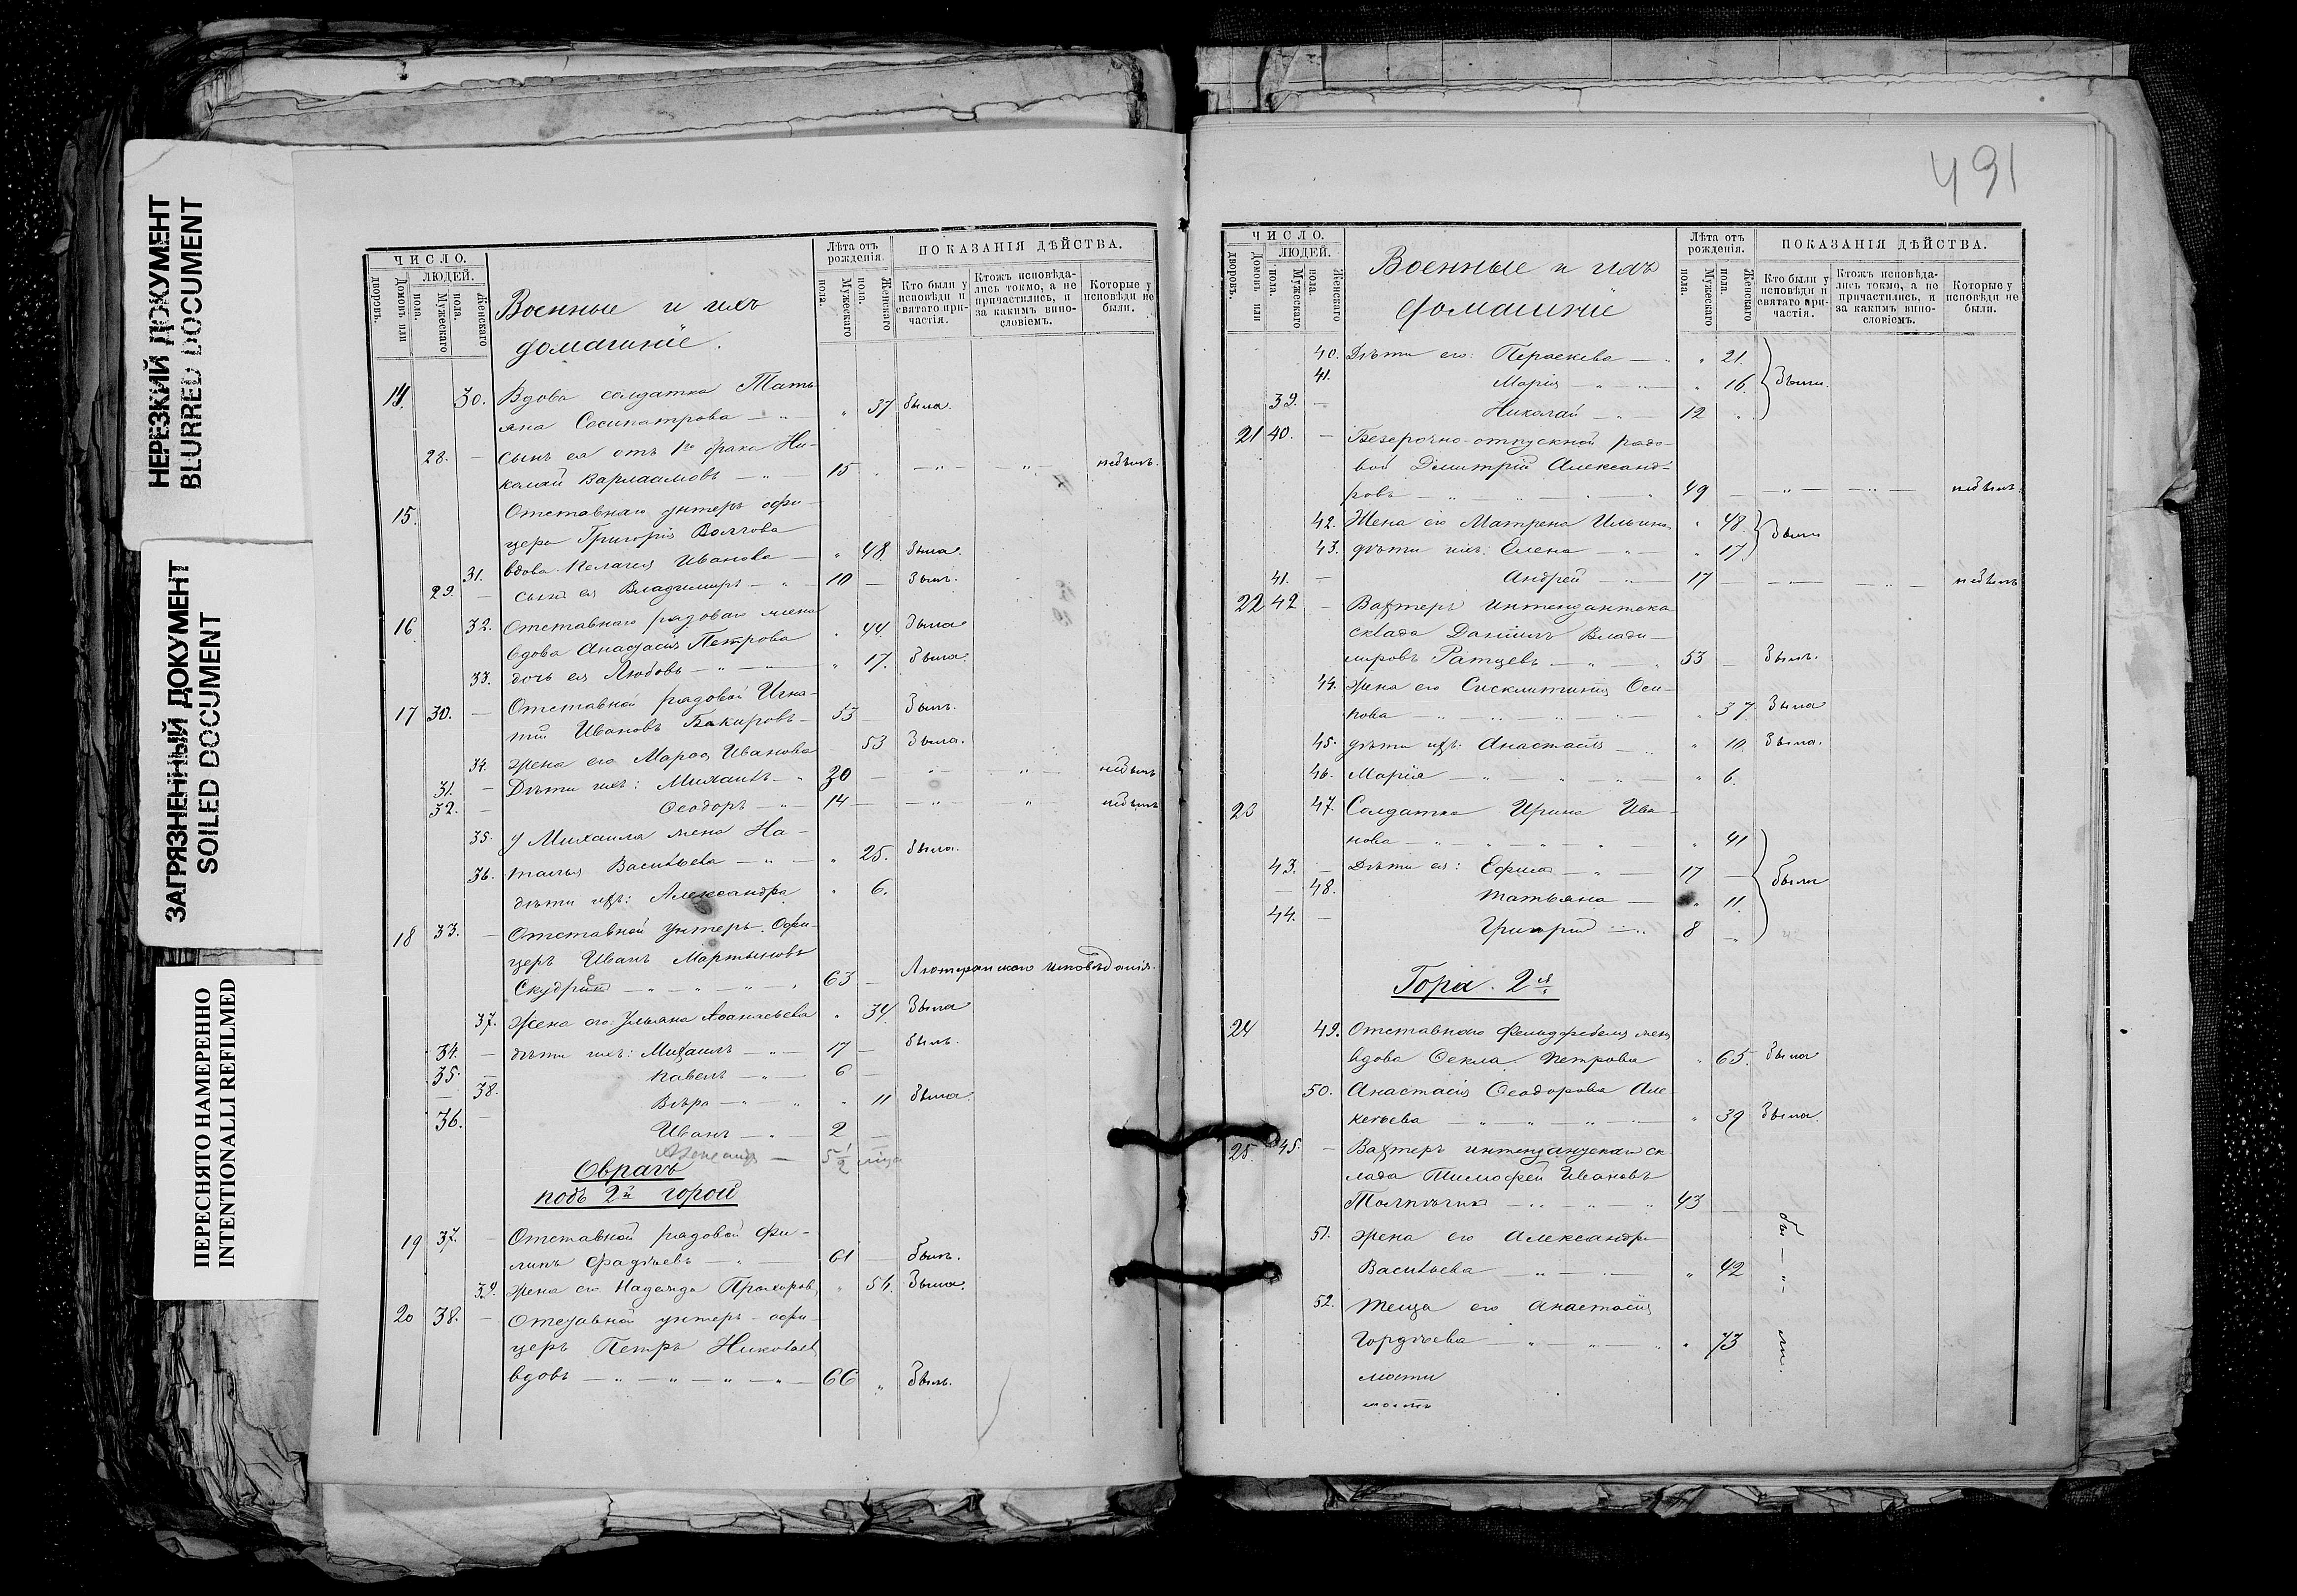 НЕРЕЗКИЙ ДОКУМЕНТ
BLURRED DOCUMENT
ЗАГРЯЗНЕННЫЙ ДОКУМЕНТ
SOILED DOCUMENT
ПЕРЕСНЯТО НАМЕРЕННО
INTENTIONALLI REFILMED
ЧИСЛО.
ЛЮДЕЙ.
Домовъ или дворовъ.
Мужескаго пола.
Женскаго пола.
Военные и ихъ
домашніе.
Лѣта отъ рожденія.
Мужескаго пола.
Женскаго пола.
ПОКАЗАНІЯ ДѢЙСТВА.
Кто были у исповѣди и святаго причастія.
Ктожъ исповѣдались токмо, а не причастились, и за какимъ винословіемъ.
Которые у исповѣди не были.
14. 30. Вдова солдатка Тать-
яна Сосипатрова — „ — „ 37 была.
28. — сынъ ея отъ 1го брака Ни-
колай Варлаамовъ — „ — 15 . — „ — „ — небылъ.
15. Отставнаго унтеръ офи-
цера Григорія Волгова
31. вдова Пелагея Иванова — „ 48. была.
29. — сынъ ея Владимиръ — „ — 10 — былъ.
16 32. Отставнаго рядоваго жена
вдова Анастасія Петрова „ 44. была
33. дочь ея Любовь — „ — „ 17. была.
17 30. — Отставной рядовой Игна-
тій Ивановъ Бакировъ — 53 былъ.
34. жена его Марѳа Иванова — 53 была.
31. — Дѣти ихъ: Михаилъ — „ 30 — „ — „ — небылъ
32. — Ѳеодоръ — „ — 14 — — „ — „ небылъ
35. у Михаила жена На-
36. талья Васильева — „ — „ 25. была.
дѣти ихъ: Александра „ 6.
18 33. — Отставной унтеръ-Офи-
церъ Иванъ Мартыновъ
— „ — „ — „ — „ 63 — Лютеранскаго исповѣданія.
37. Жена его: Ульяна Аѳанасьева „ 34. была
34. — дѣти ихъ: Михаилъ — „ — 17 — былъ.
35. — Павелъ — „ — 6 —
— 38. Вѣра — „ — „ „ 11 была.
36. — Иванъ — „ — 2 —
— 5 1/2
Оврагъ
подъ 2й горой
19 37. — Отставной рядовой Фи-
липъ Фадѣевъ — „ — 61 — былъ.
39. жена его Надежда Прохоров. „ 54. была.
20 38. — Отставной унтеръ-офи-
церъ Петръ Николае
вдовъ — „ — „ — „ — „ — 66 „ былъ.
491
ЧИСЛО.
ЛЮДЕЙ.
Домовъ или дворовъ.
Мужескаго пола.
Женскаго пола.
Военные и ихъ
домашніе
Лѣта отъ рожденія.
Мужескаго пола.
Женскаго пола.
ПОКАЗАНІЯ ДѢЙСТВА.
Кто были у исповѣди и святаго причастія.
Ктожъ исповѣдались токмо, а не причастились, и за какимъ винословіемъ.
Которые у исповѣди не были.
40. Дѣти его: Параскева — „ „ 21.
41. Марія — „ — „ 16. были.
39. — Николай — „ — 12 „
21 40. — Безсрочно-отпускной рядо-
вой Димитрій Александ-
ровъ — „ — „ — „ — „ 49 — — „ — — „ — небылъ.
42. Жена его Матрена Ильина „ 48. были
43. дѣти ихъ: Елена — „ „ 17
41. — Андрей — „ — 17 — — „ — — „ — небылъ
22 42 — Вахтеръ интендантска
склада Даніилъ Влади-
мировъ Ратцевъ — „ — „ 53 — былъ.
44. жена его Сисклитикія Оси-
пова — „ — „ — „ — „ 37. была
45. дѣти ихъ: Анастасія — „ „ 10. была.
46. Марія — „ — „ — „ — „ 6.
23 47. Солдатка Ирина Ива-
нова — „ — „ — „ — „ „ 41
43. — Дѣти ея: Ефимъ — „ — 17 — были
— 48. Татьяна — „ 11.
44. — Григорій — „ 8 — „
Гора. 2я
24 49. Отставнаго Фельдфебеля жена
вдова Ѳекла Петрова „ 65. была
50. Анастасія Ѳеодорова Але-
ксѣева — „ — „ — „ — „ 39 была.
25. 45. — Вахтеръ интендантскаго ск
лада Тимофей Ивановъ
— „ — „ — „ 43 —
51. жена его Александра
Васильева — „ — „ — „ 42 бы — „ — ли.
52. теща его Анастасія
Гордѣева — „ — „ — „ „ 73
мости